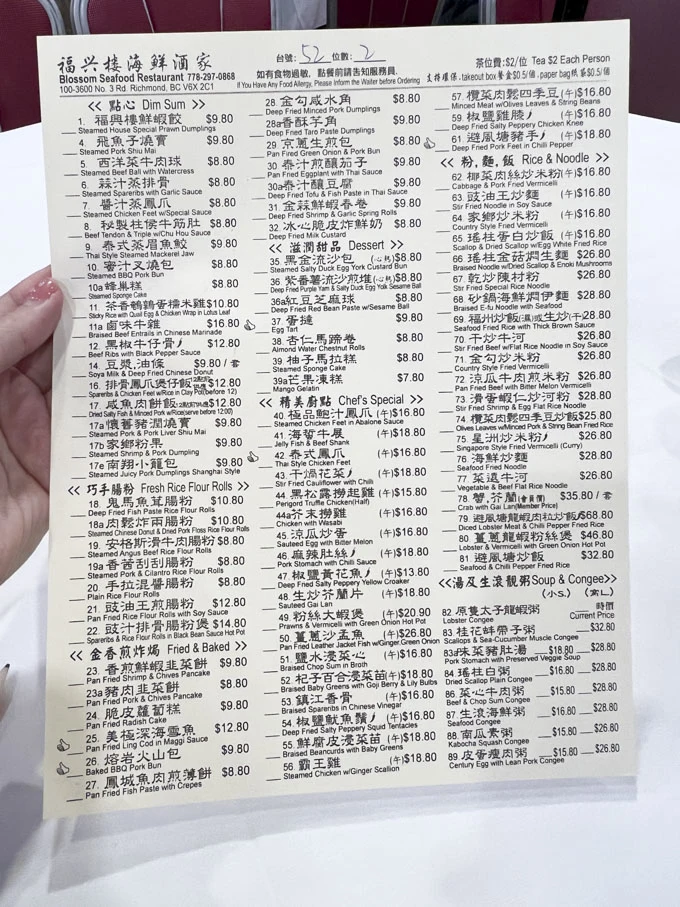 福兴楼海鲜酒家
Blossom Seafood Restaurant 778-297-0868
100-3600 No. 3 Rd. Richmond, BC V6X 2C1
台號: 52 位數: 2
如有食物過敏, 點餐前請告知服務員.
If You Have Any Food Allergy, Please Inform the Waiter before Ordering
茶位費:$2/位 Tea $2 Each Person
支持環保,takeout box 餐盒$0.5/個,paper bag紙袋$0.5/個
<< 點心 Dim Sum >>
1. 福興樓鮮蝦餃 $9.80
Steamed House Special Prawn Dumplings
4. 飛魚子燒賣 $9.80
Steamed Pork Shiu Mai
5. 西洋菜牛肉球 $8.80
Steamed Beef Ball with Watercress
6. 蒜汁蒸排骨 $8.80
Steamed Spareribs with Garlic Sauce
7. 醬汁蒸鳳爪 $8.80
Steamed Chicken Feet w/Special Sauce
8. 秘製柱侯牛筋肚 $8.80
Beef Tendon & Triple w/Chu Hou Sauce
9. 泰式蒸眉魚鮫 $9.80
Thai Style Steamed Mackerel Jaw
10. 蜜汁叉燒包 $8.80
Steamed BBQ Pork Bun
10a 蜂巢糕 $8.80
Steamed Sponge Cake
11. 茶香鵪鶉蛋糯米雞$10.80
Sticky Rice with Quail Egg & Chicken Wrap in Lotus Leaf
11a 鹵味牛雜 $16.80
Braised Beef Entrails in Chinese Marinade
12. 黑椒牛仔骨 $12.80
Beef Ribs with Black Pepper Sauce
14. 豆漿,油條 $9.80 / 套
Soya Milk & Deep Fried Chinese Donut
16. 排骨鳳爪煲仔飯 $12.80
Spareribs & Chicken Feet w/Rice in Clay Pot(before 12)
17. 咸魚肉餅飯 $12.80
Dried Salty Fish & Minced Pork w/Rice(serve before 12:00)
17a 懷舊豬潤燒賣 $9.80
Steamed Pork & Pork Liver Shiu Mai
17b 家鄉粉果 $9.80
Steamed Shrimp & Pork Dumpling
17e 南翔小籠包 $9.80
Steamed Juicy Pork Dumplings Shanghai Style
<< 巧手腸粉 Fresh Rice Flour Rolls >>
18. 鬼馬魚茸腸粉 $10.80
Deep Fried Fish Paste Rice Flour Rolls
18a 肉鬆炸兩腸粉 $10.80
Steamed Chinese Donut & Deep Pork Floss Rice Flour Rolls
19. 安格斯滑牛肉腸粉 $8.80
Steamed Angus Beef Rice Flour Rolls
19a 香茜刮刮腸粉 $8.80
Steamed Pork & Cilantro Rice Flour Rolls
20. 手拉混醬腸粉 $8.80
Plain Rice Flour Rolls
21. 豉油王煎腸粉 $12.80
Pan Fried Rice Flour Rolls with Soy Sauce
22. 豉汁排骨腸粉煲 $14.80
Spareribs & Rice Flour Rolls in Black Bean Sauce Hot Pot
<< 金香煎炸焗 Fried & Baked >>
23. 香煎鮮蝦韭菜餅 $9.80
Pan Fried Shrimp & Chives Pancake
23a 豬肉韭菜餅 $8.80
Pan Fried Pork & Chives Pancake
24. 脆皮蘿蔔糕 $9.80
Pan Fried Radish Cake
25. 美極深海雪魚 $12.80
Pan Fried Ling Cod in Maggi Sauce
26. 熔岩火山包 $9.80
Baked BBQ Pork Bun
27. 鳳城魚肉煎薄餅 $8.80
Pan Fried Fish Paste with Crepes
28. 金勾咸水角 $8.80
Deep Fried Minced Pork Dumplings
28a 香酥芋角 $9.80
Deep Fried Taro Paste Dumplings
29. 京蔥生煎包 $8.80
Pan Fired Green Onion & Pork Bun
30. 泰汁煎釀茄子 $9.80
Pan Fried Eggplant with Thai Sauce
30a 泰汁釀豆腐 $9.80
Deep Fried Tofu & Fish Paste in Thai Sauce
31. 金蒜鮮蝦春卷 $9.80
Deep Fried Shrimp & Garlic Spring Rolls
32. 冰心脆皮炸鮮奶 $8.80
Deep Fried Milk Custard
<< 滋潤甜品 Dessert >>
35. 黑金流沙包 $8.80
Steamed Salty Duck Egg York Custard Bun
36. 紫番薯流沙煎堆 $8.80
Deep Fried Purple Yam & Salty Duck Egg York Sesame Ball
36a 紅豆芝麻球 $8.80
Deep Fried Red Bean Paste w/Sesame Ball
37. 蛋撻 $9.80
Egg Tart
38. 杏仁馬蹄卷 $8.80
Almond Water Chestnut Rolls
39. 柚子馬拉糕 $8.80
Steamed Sponge Cake
39a 芒果凍糕 $7.80
Mango Gelatin
<< 精美廚點 Chef's Special >>
40. 極品鮑汁鳳爪 (午)$16.80
Steamed Chicken Feet in Abalone Sauce
41. 海蜇牛展 (午)$18.80
Jelly Fish & Beef Shank
42. 泰式鳳爪 (午)$16.80
Thai Style Chicken Feet
43. 干煸花菜 (午)$18.80
Stir Fried Cauliflower with Chili
44. 黑松露撈起雞 (午)$15.80
Perigord Truffle Chicken(Half)
44a 芥末撈雞 (午)$16.80
Chicken with Wasabi
45. 涼瓜炒蛋 (午)$16.80
Sauteed Egg with Bitter Melon
46. 麻辣肚絲 (午)$18.80
Pork Stomach with Chilli Sauce
47. 椒鹽黃花魚 (午)$13.80
Deep Fried Salty Peppery Yellow Croaker
48. 生炒芥蘭片 (午)$18.80
Sauteed Gai Lan
49. 粉絲大蝦煲 (午)$20.90
Prawns & Vermicelli with Green Onion Hot Pot
50. 薑蔥沙孟魚 (午)$26.80
Pan Fried Leather Jacket Fish w/Ginger,Green Onion
51. 鹽水浸菜心 (午)$16.80
Braised Chop Sum in Broth
52. 杞子百合浸菜苗(午)$18.80
Braised Baby Greens with Goji Berry & Lily Bulbs
53. 鎮江香骨 (午)$16.80
Braised Spareribs in Chinese Vinegar
54. 椒鹽魷魚鬚 (午)$16.80
Deep Fried Salty Peppery Squid Tentacles
55. 鮮腐皮浸菜苗 (午)$18.80
Braised Beancurds with Baby Greens
56. 霸王雞 (午)$18.80
Steamed Chicken w/Ginger Scallion
57. 欖菜肉鬆四季豆(午)$16.80
Minced Meat w/Olives Leaves & String Beans
59. 椒鹽雞膝 (午)$16.80
Deep Fried Salty Peppery Chicken Knee
61. 避風塘豬手 (午)$18.80
Deep Fried Pork Feet in Chilli Pepper
<< 粉,麵,飯 Rice & Noodle >>
62. 椰菜肉絲炒米粉(午)$16.80
Cabbage & Pork Fried Vermicelli
63. 豉油王炒麵 (午)$16.80
Stir Fried Noodle in Soy Sauce
64. 家鄉炒米粉 (午)$16.80
Country Style Fried Vermicelli
65. 瑤柱蛋白炒飯 (午)$16.80
Scallop & Dried Scallop w/Egg White Fried Rice
66. 瑤柱金菇燜生麵 $26.80
Braised Noodle w/Dried Scallop & Enoki Mushrooms
67. 乾炒陳村粉 $26.80
Stir Fried Special Rice Noodle
68. 砂鍋海鮮燜伊麵 $28.80
Braised E-fu Noodle with Seafood
69. 福州炒飯(濕)或生炒(干)$28.80
Seafood Fried Rice with Thick Brown Sauce
70. 干炒牛河 $26.80
Stir Fried Beef w/Flat Rice Noodle in Soy Sauce
71. 金勾炒米粉 $26.80
Country Style Fried Vermicelli
72. 涼瓜牛肉煎米粉 $26.80
Pan Fried Beef with Bitter Melon Vermicelli
73. 滑蛋蝦仁炒河粉 $28.80
Stir Fried Shrimp & Egg Flat Rice Noodle
74. 欖菜肉鬆四季豆炒飯$25.80
Olives Leaves w/Minced Pork & String Bean Fried Rice
75. 星洲炒米粉 $26.80
Singapore Style Fried Vermicelli (Curry)
76. 海鮮炒麵 $28.80
Seafood Fried Noodle
77. 菜遠牛河 $26.80
Vegetable & Beef Flat Rice Noodle
78. 蟹,芥蘭(會員價) $35.80 / 套
Crab with Gai Lan(Member Price)
79. 避風塘龍蝦肉粒炒飯$68.80
Diced Lobster Meat & Chilli Pepper Fried Rice
80. 薑蔥龍蝦粉絲煲 $46.80
Lobster & Vermicelli with Green Onion Hot Pot
81. 避風塘炒飯 $32.80
Seafood & Chilli Pepper Fried Rice
<<湯及生滾靚粥Soup & Congee>>
(小S.) (窩L.)
82. 原隻太子龍蝦粥 時價
Lobster Congee Current Price
83. 桂花蚌帶子粥 $32.80
Scallops & Sea-Cucumber Muscle Congee
83a 味菜豬肚湯 $18.80 $28.80
Pork Stomach with Preserved Veggie Soup
84. 瑤柱白粥 $28.80
Dried Scallop Plain Congee
86. 菜心牛肉粥 $15.80 $28.80
Beef & Chop Sum Congee
87. 生滾海鮮粥 $16.80 $28.80
Seafood Congee
88. 南瓜素粥 $15.80 $26.80
Kabocha Squash Congee
89. 皮蛋瘦肉粥 $15.80 $26.80
Century Egg with Lean Pork Congee